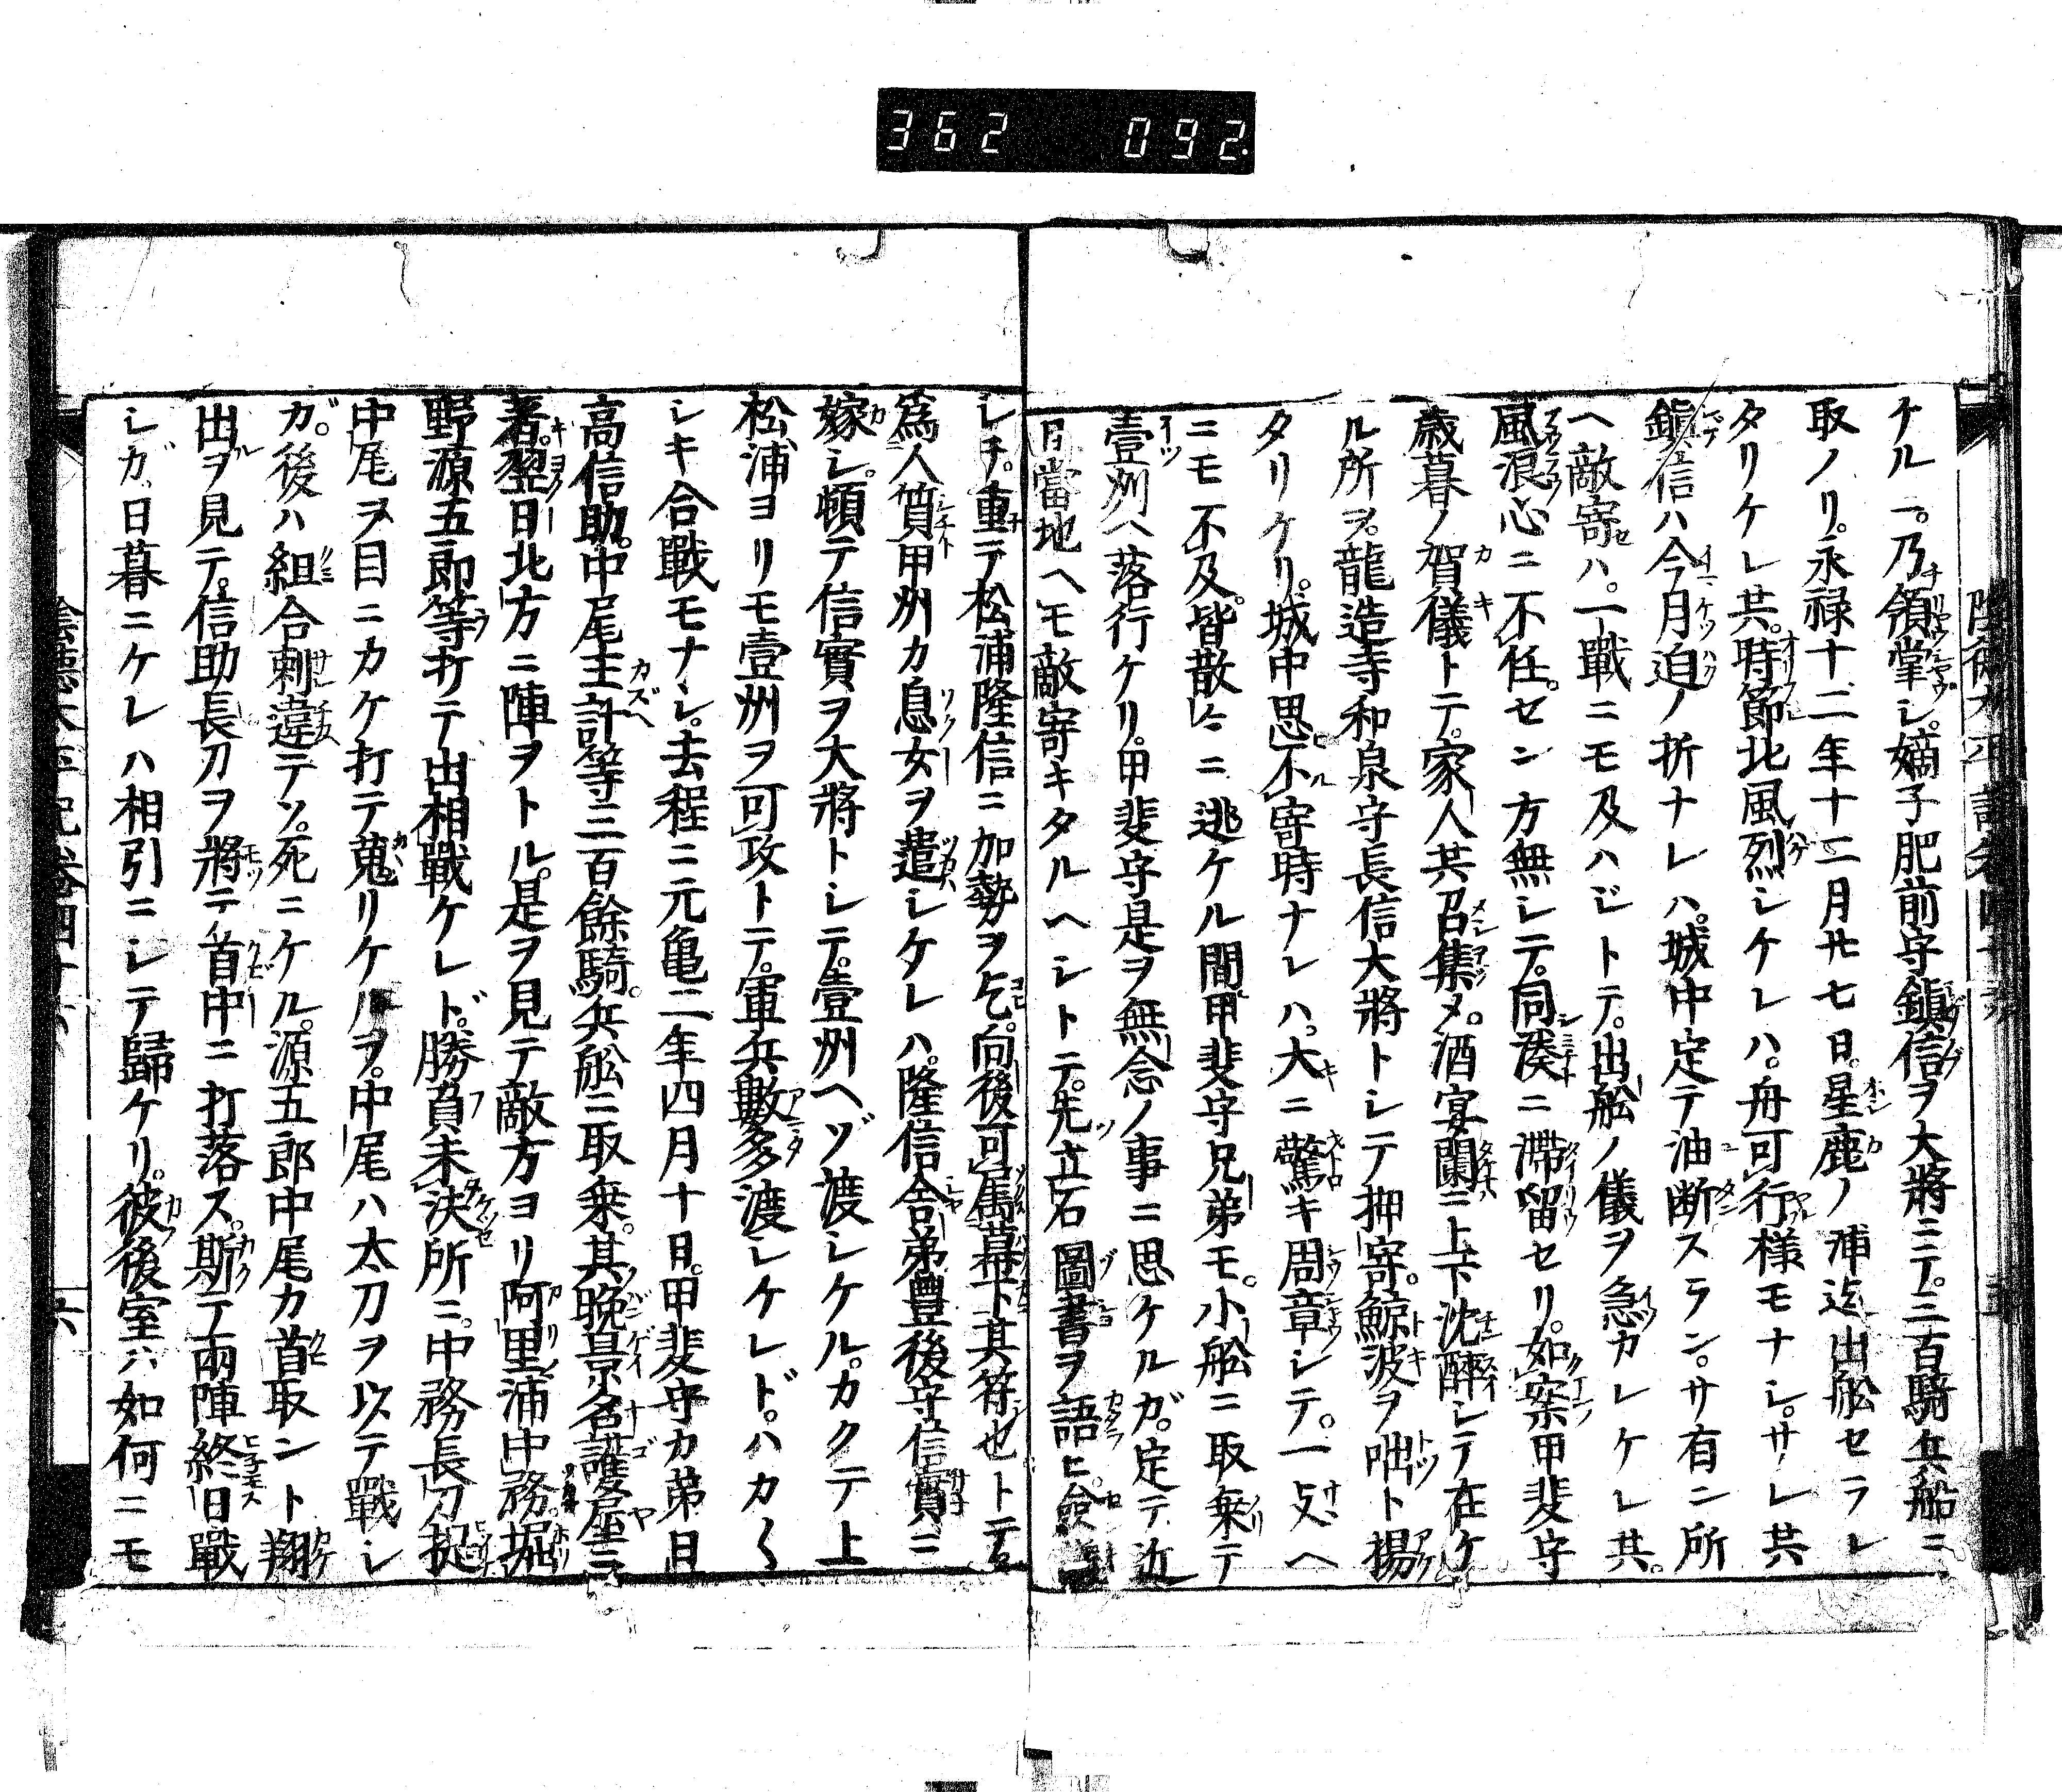 362 092
ケル一。乃領掌シ。嫡子肥前守鎮信ヲ大將ニテ。三百騎兵船ニ
取ノリ。永禄十二年十二月廿七日。星鹿ノ浦迄出舩セラレ
タリケレ共。時節北風烈シケレハ。舟可行様モナシ。サレ共
鎮信ハ今月迫ノ折ナレハ。城中定テ油断スラン。サ有ン所
ヘ敵寄ハ。一戰ニモ及ハジトテ。出舩ノ儀ヲ急カレケレ共。
風浪心ニ不任。セン方無シテ。同湊ニ滞留セリ。如案甲斐守
歳暮ノ賀儀トテ。家人共召集メ。酒宴闌ニ上下沈醉シテ在ケ
ル所ヲ。龍造寺和泉守長信大將トシテ押寄。鯨波ヲ咄ト揚
タリケリ。城中思不寄時ナレハ。大ニ驚キ周章シテ。一支ヘ
ニモ不及。皆散々ニ逃ケル間甲斐守兄弟モ。小舩ニ取乗テ
壹刕ヘ落行ケリ。甲斐守是ヲ無念ノ事ニ思ケルガ。定テ近
日當地ヘモ敵寄キタルヘシトテ。先立石圖書ヲ語ヒ。
レチ。重テ松浦隆信ニ加勢ヲ乞。向後可属幕下其符也トテ。
爲人質甲州カ息女ヲ遣シケレハ。隆信舎弟豊後守信實ニ
嫁シ。頓テ信實ヲ大將トシテ。壹州ヘゾ渡シケル。カクテ上
松浦ヨリモ壹州ヲ可攻トテ。軍兵數多渡シケレド。ハカ〱
シキ合戰モナシ。去程ニ元亀二年四月十日。甲斐守カ弟日
高信助。中尾主計等三百餘騎。兵舩ニ取乗。其晩景名護屋ニ
著。翌日北方ニ陣ヲトル。是ヲ見テ敵方ヨリ阿里浦中務。堀
野源五郎等打テ出相戰ケレド。勝負未決所ニ。中務長刀提
中尾ヲ目ニカケ打テ蒐リケルヲ。中尾ハ太刀ヲ以テ戰シ
ガ。後ハ組合刺違テソ。死ニケル。源五郎中尾カ首取ント翔
出ヲ見テ。信助長刀ヲ將テ首中ニ打落ス。斯テ兩陣終日戰
シガ、日暮ニケレハ相引ニシテ歸ケリ。彼後室ハ如何ニモ
六